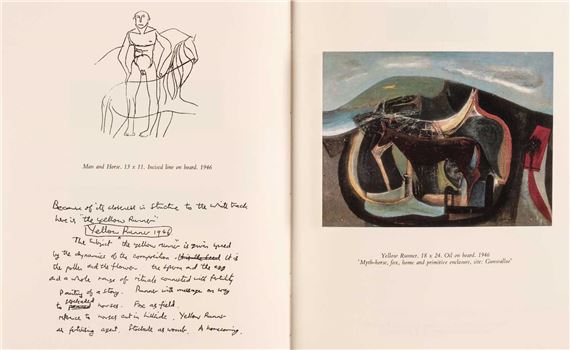 Man and Horse. 13 x 11. Incised line on board. 1946
Because of its closeness in structure to the white track
here is "the yellow Runner"
Yellow Runner 1946
The subject "the yellow runner" is given speed
by the dynamics of the composition. It is
the pollen and the flower the sperm and the egg
and a whole range of rituals connected with fertility
Painting of a story. Runner with message on way
to stockaded horses. Fox as field.
reference to horses cut in hillside. Yellow Runner
as fertilising agent. Stockade as womb. A homecoming.
Yellow Runner. 18 x 24. Oil on board. 1946
'Myth-horse, fox, home and primitive enclosure, site: Gunwalloe'